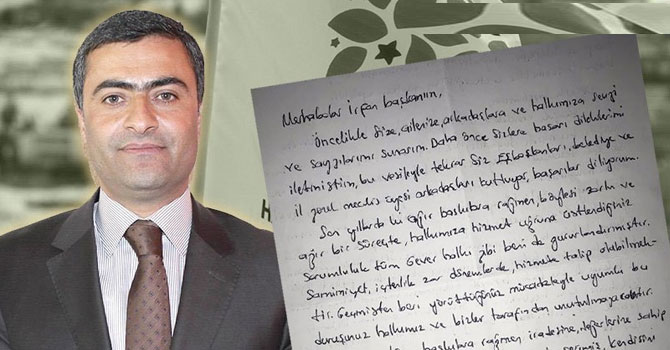 Merhabalar İrfan başkanım,
Öncelikle Size, ailenize, arkadaşlara ve halkımıza sevgi
ve saygılarımı sunarım. Daha önce sizlere başarı dileklerimi
iletmiştim, bu vesileyle tekrar Siz Eşbaşkanları, belediye ve
il genel meclis üyesi arkadaşları kutluyor, başarılar diliyorum.
Son yıllarda ki ağır baskılara rağmen, böylesi zorlu ve
ağır bir Süreçte, halkımıza hizmet uğruna üstlendiğiniz
Sorumluluk tüm Gever halkı gibi beni de gururlandırmıştır.
Samimiyet, içtenlik zor dönemlerde, hizmete talip olabilmek-
tir. Geçmişten beri yürüttüğünüz mücadeleyle uyumlu bu
duruşunuz halkımız ve bizler tarafından unutulmayacaktır.
baskılara rağmen iradesine, değerlerine sahip
kendisini
H